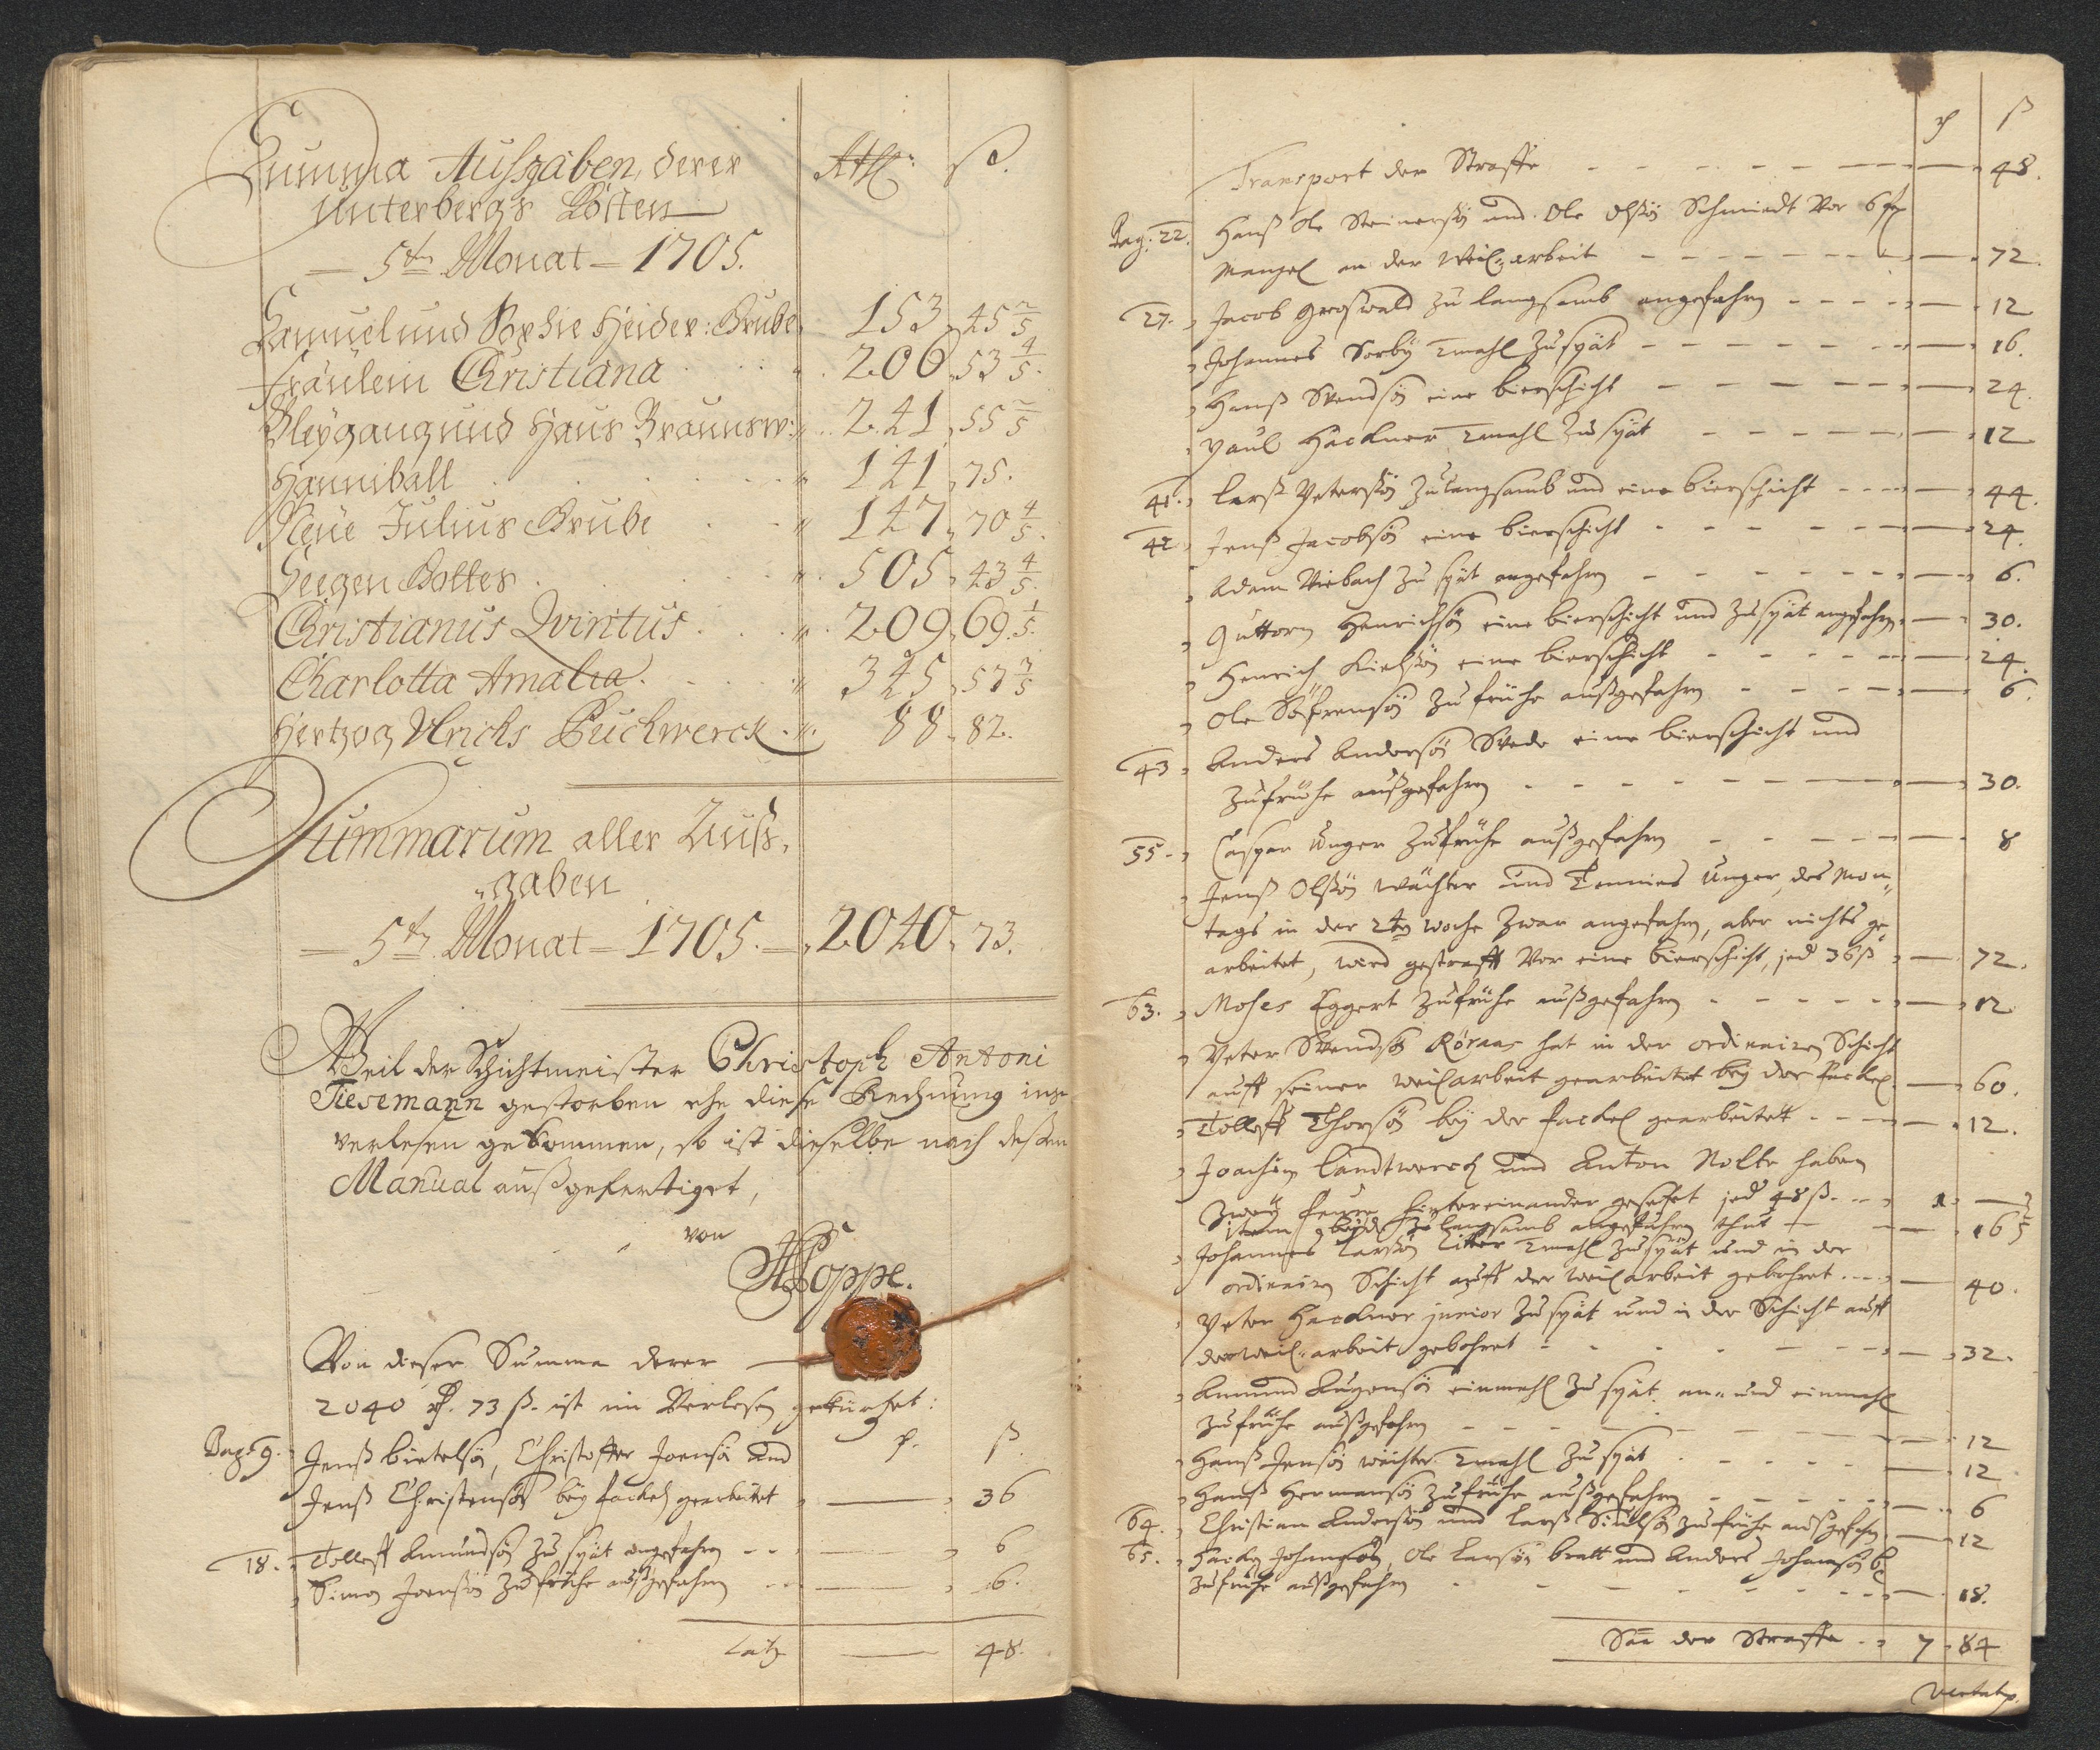 Summa Außgaben, derer Rthl: ß.
Unterbergs Kosten
— 5tn Monat — 1705.
Samuel und Sophie Heider: Grube 153 45 2/5
Fräulein Christiana 206 53 4/5.
Bleygang und Haus Braunsw: 241 55 2/5
Hanniball 141 75.
Neue Julius Grube 147 70 4/5.
Seegen Gottes 505 43 4/5.
Christianus Qvintus 209 69 1/5.
Charlotta Amalia 345 57 3/5
Hertzog Ulrichs Puchwerck 88 82.
Summarum aller Auß-
gaben
— 5tn Monat — 1705. — 2040 73.
Weil der Schichtmeister Christoph Antoni
Tiesemann gestorben ehe diese Rechnung ins
verlesen gekommen, so ist dieselbe nach deßen
Manual außgefertiget,
von
Hoppe.
Von dieser Summa derer
2040 rf. 73 ß. ist im Verlesen gekürzet:
Pag: 9. Jenß Christoffer Joensön und
Jenß Christensön bey fackel gearbeitet — 36
18. Tolleff Amundsön zu spät angefahren — 6
Simon Joensön zu frühe außgefahren — 6.
Latz — 48.
Transport der Straffe — 48.
Pag: 22. Hanß Ole Steinersön und Ole Olsön Schmiedt vor 6
Mangel an der Weil-arbeit — 72.
27. Jacob Groswald zu langsamb angefahren — 12
Johannes Sorby 2mahl zu spät — 16.
Hanß Svendsön eine bierschicht — 24.
Paul Hackner 2mahl zu spät — 12
41. Larß Petersön zu langsamb und eine bierschicht — 44.
42. Jenß Jacobsön eine bierschicht — 24.
Adam Viebach zu spät angefahren — 6.
Guttorm Henrichsön eine bierschicht und zu spät angefahren — 30.
Henrich Kielsön eine bierschicht — 24.
Ole Söfrensön zu frühe außgefahren — 6.
43. Anders Andersön Svede eine bierschicht und
zu frühe außgefahren — 30.
55. Caspar Unger zu frühe außgefahren — 8
Jenß Olsön Wächter und Tennies Unger, des Mon-
tags in der 2tn Woche zwar angefahren, aber nichts ge-
arbeitet, wird gestrafft vor eine bierschicht, jed 36 ß — 72.
63. Moses Eggert zu frühe außgefahren — 12
Peter Svendsön Röraas hat in der ordinairen Schicht
auff seiner weilarbeit gearbeitet bey der fackel — 60.
Tolleff Thorsön bey der fackel gearbeitet — 12.
Joachim Landtwerck und Anton Nolte haben
zwey feuer hintereinander gesetzet jed 48 ß. 1 —
item beyde zu langsamb angefahren thut — 16
Johannes Larsön Litter 2mahl zu spät und in der
ordinairen Schicht auff der weilarbeit gebohret — 40.
Peter Hackner junior zu spät und in der Schicht auff
der weil-arbeit gebohret — 32.
Amund Augensön einmahl zu spät an- und einmahl
zu frühe außgefahren — 12
Hanß Jensön wächter 2mahl zu spät — 12
Hanß Hermansön zu frühe außgefahren — 6
64. Christian Andersön und Larß zu frühe außgefahren — 12
65. Hacken Johansön, Ole Larsön bratt und Anders Johansön
zu frühe außgefahren — 18.
Sa der Straffe — 7 84
vertatp.